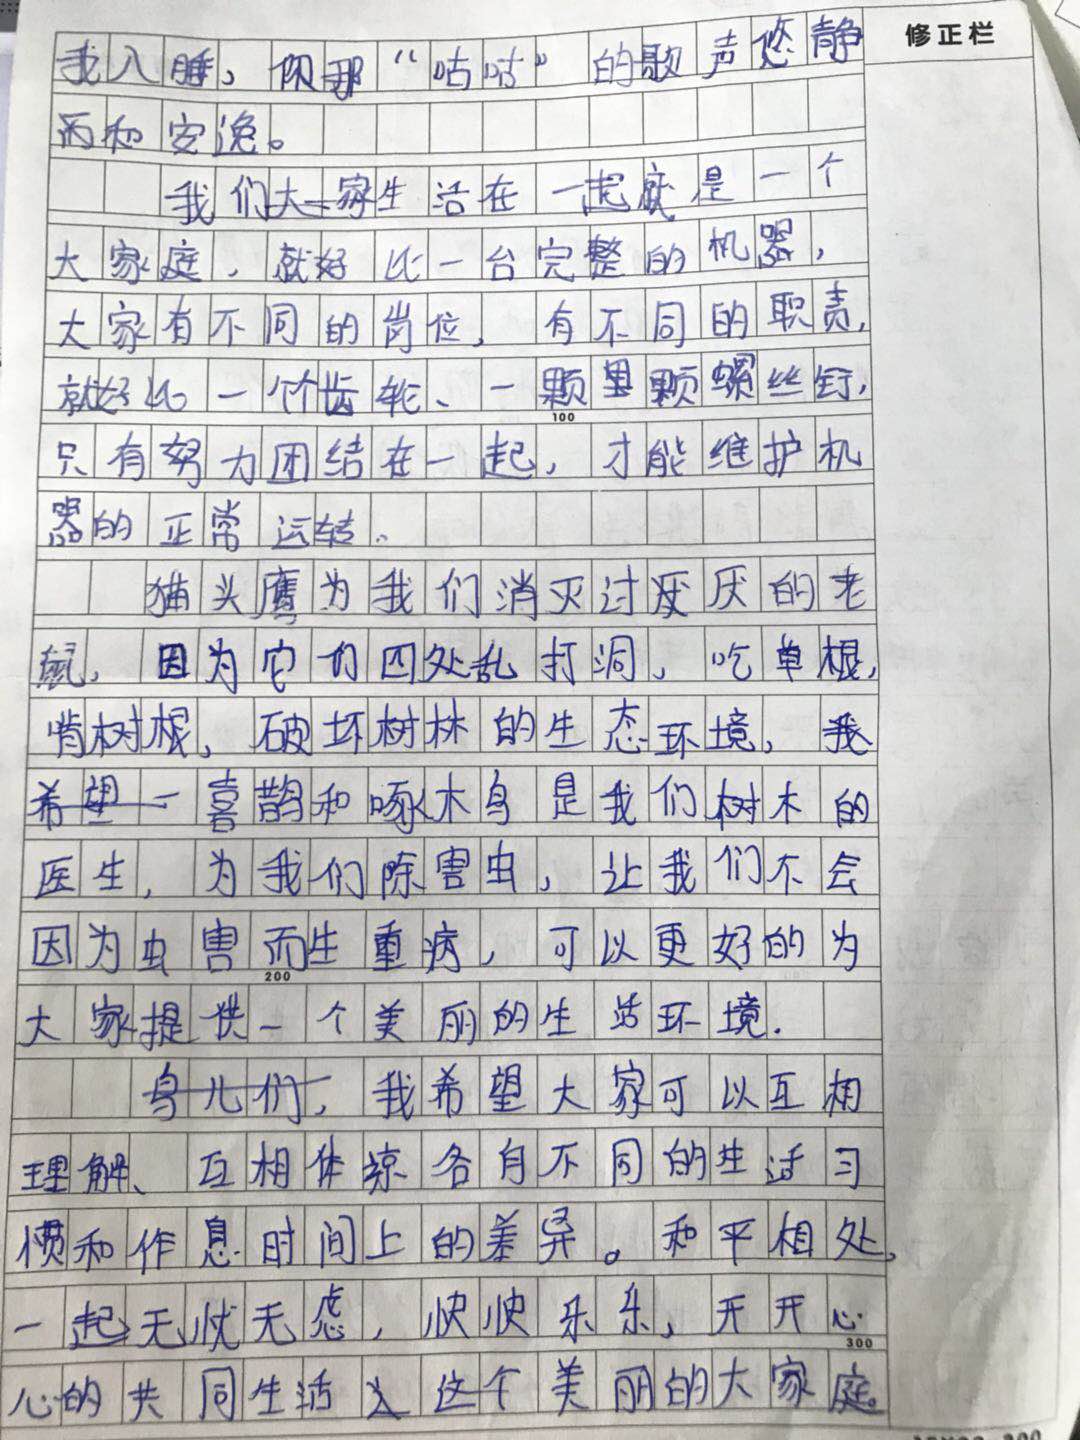 修正栏
我入睡，那"咕咕"的歌声悠静
而和安逸。
我们大家生活在一起就是一个
大家庭，就好比一台完整的机器，
大家有不同的岗位，有不同的职责，
就好比一个个齿轮、一颗颗螺丝钉，
100
只有努力团结在一起，才能维护机
器的正常运转。
猫头鹰为我们消灭过厌的老
鼠，因为它们四处乱打洞，吃草根，
啃树根，破坏树林的生态环境，我
希望一喜鹊和啄木鸟是我们树木的
医生，为我们除害虫，让我们不会
因为虫害而生重病，可以更好的为
200
大家提供一个美丽的生活环境.
鸟儿们，我希望大家可以互相
理解、互相体凉各自不同的生活习
惯和作息时间上的差异。和平相处，
一起无忧无虑，快快乐乐，开开心
300
心的共同生活这个美丽的大家庭。